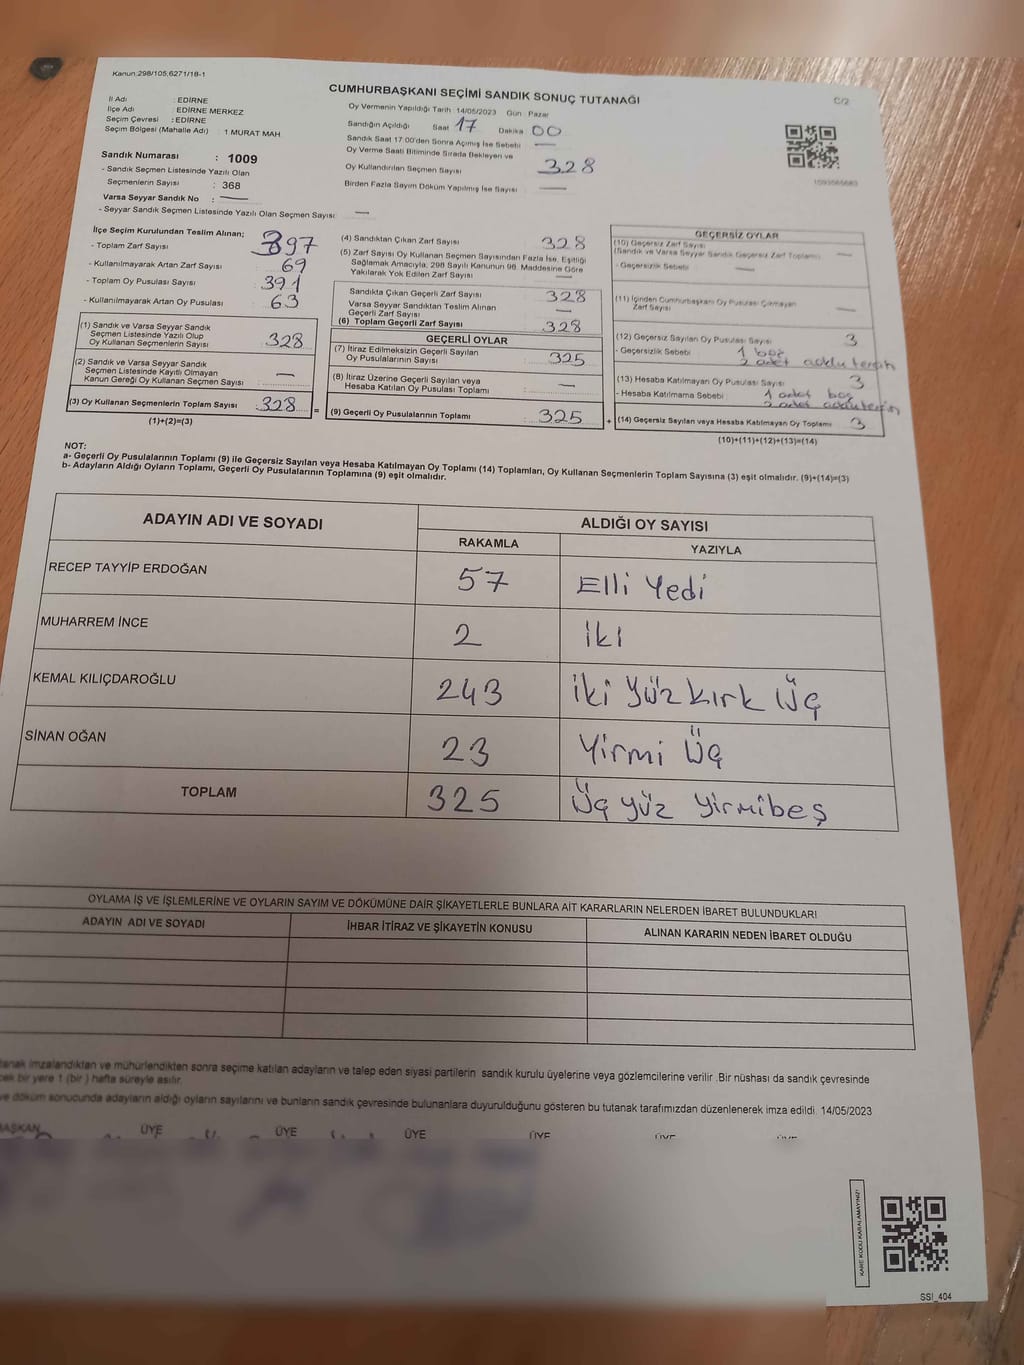 Kanun:298/105;6271/18-1
CUMHURBAŞKANI SEÇİMİ SANDIK SONUÇ TUTANAĞI
C/2
İl Adı : EDİRNE
İlçe Adı : EDİRNE MERKEZ
Seçim Çevresi : EDİRNE
Seçim Bölgesi (Mahalle Adı) : 1 MURAT MAH
Oy Vermenin Yapıldığı Tarih :14/05/2023 Gün :Pazar
Sandığın Açıldığı Saat 17 Dakika 00
Sandık Saat 17:00'den Sonra Açılmış İse Sebebi —
Oy Verme Saati Bitiminde Sırada Bekleyen ve
Oy Kullandırılan Seçmen Sayısı 328
Birden Fazla Sayım Döküm Yapılmış İse Sayısı —
Sandık Numarası : 1009
- Sandık Seçmen Listesinde Yazılı Olan
Seçmenlerin Sayısı : 368
Varsa Seyyar Sandık No : —
- Seyyar Sandık Seçmen Listesinde Yazılı Olan Seçmen Sayısı: —
İlçe Seçim Kurulundan Teslim Alınan;
- Toplam Zarf Sayısı 397
- Kullanılmayarak Artan Zarf Sayısı : 69
- Toplam Oy Pusulası Sayısı : 391
- Kullanılmayarak Artan Oy Pusulası : 63
(1) Sandık ve Varsa Seyyar Sandık
Seçmen Listesinde Yazılı Olup
Oy Kullanan Seçmenlerin Sayısı : 328
(2) Sandık ve Varsa Seyyar Sandık
Seçmen Listesinde Kayıtlı Olmayan
Kanun Gereği Oy Kullanan Seçmen Sayısı : —
(3) Oy Kullanan Seçmenlerin Toplam Sayısı : 328
(1)+(2)=(3)
(4) Sandıktan Çıkan Zarf Sayısı : 328
(5) Zarf Sayısı Oy Kullanan Seçmen Sayısından Fazla İse, Eşitliği
Sağlamak Amacıyla, 298 Sayılı Kanunun 98. Maddesine Göre
Yakılarak Yok Edilen Zarf Sayısı : —
Sandıkta Çıkan Geçerli Zarf Sayısı : 328
Varsa Seyyar Sandıktan Teslim Alınan
Geçerli Zarf Sayısı : —
(6) Toplam Geçerli Zarf Sayısı : 328
GEÇERLİ OYLAR
(7) İtiraz Edilmeksizin Geçerli Sayılan
Oy Pusulalarının Sayısı : 325
(8) İtiraz Üzerine Geçerli Sayılan veya
Hesaba Katılan Oy Pusulası Toplamı : —
=
(9) Geçerli Oy Pusulalarının Toplamı : 325
+
GEÇERSİZ OYLAR
(10) Geçersiz Zarf Sayısı
(Sandık ve Varsa Seyyar Sandık Geçersiz Zarf Toplamı) : —
- Geçersizlik Sebebi : —
(11) İçinden Cumhurbaşkanı Oy Pusulası Çıkmayan
Zarf Sayısı : —
(12) Geçersiz Sayılan Oy Pusulası Sayısı : 3
- Geçersizlik Sebebi : 1 boş
2 adet
(13) Hesaba Katılmayan Oy Pusulası Sayısı : 3
- Hesaba Katılmama Sebebi : 1 adet boş
2 adet
(14) Geçersiz Sayılan veya Hesaba Katılmayan Oy Toplamı : 3
(10)+(11)+(12)+(13)=(14)
NOT:
a- Geçerli Oy Pusulalarının Toplamı (9) ile Geçersiz Sayılan veya Hesaba Katılmayan Oy Toplamı (14) Toplamları, Oy Kullanan Seçmenlerin Toplam Sayısına (3) eşit olmalıdır. (9)+(14)=(3)
b- Adayların Aldığı Oyların Toplamı, Geçerli Oy Pusulalarının Toplamına (9) eşit olmalıdır.
ADAYIN ADI VE SOYADI
ALDIĞI OY SAYISI
RAKAMLA YAZIYLA
RECEP TAYYİP ERDOĞAN 57 Elli Yedi
MUHARREM İNCE 2 İki
KEMAL KILIÇDAROĞLU 243 İki Yüz kırk Üç
SİNAN OĞAN 23 Yirmi Üç
TOPLAM 325 Üç yüz Yirmibeş
OYLAMA İŞ VE İŞLEMLERİNE VE OYLARIN SAYIM VE DÖKÜMÜNE DAİR ŞİKAYETLERLE BUNLARA AİT KARARLARIN NELERDEN İBARET BULUNDUKLARI
ADAYIN ADI VE SOYADI İHBAR İTİRAZ VE ŞİKAYETİN KONUSU ALINAN KARARIN NEDEN İBARET OLDUĞU
imzalandıktan ve mühürlendikten sonra seçime katılan adayların ve talep eden siyasi partilerin sandık kurulu üyelerine veya gözlemcilerine verilir .Bir nüshası da sandık çevresinde
bir yere 1 (bir ) hafta süreyle asılır.
ve döküm sonucunda adayların aldığı oyların sayılarını ve bunların sandık çevresinde bulunanlara duyurulduğunu gösteren bu tutanak tarafımızdan düzenlenerek imza edildi. 14/05/2023
BAŞKAN ÜYE ÜYE ÜYE ÜYE
KARE KODU KARALAMAYINIZ!
SSI_404